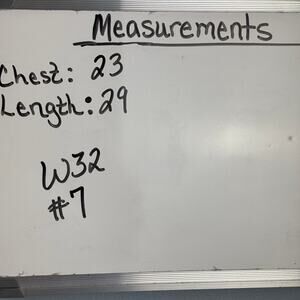 Measurements
Chest: 23
Length: 29
W32
#7